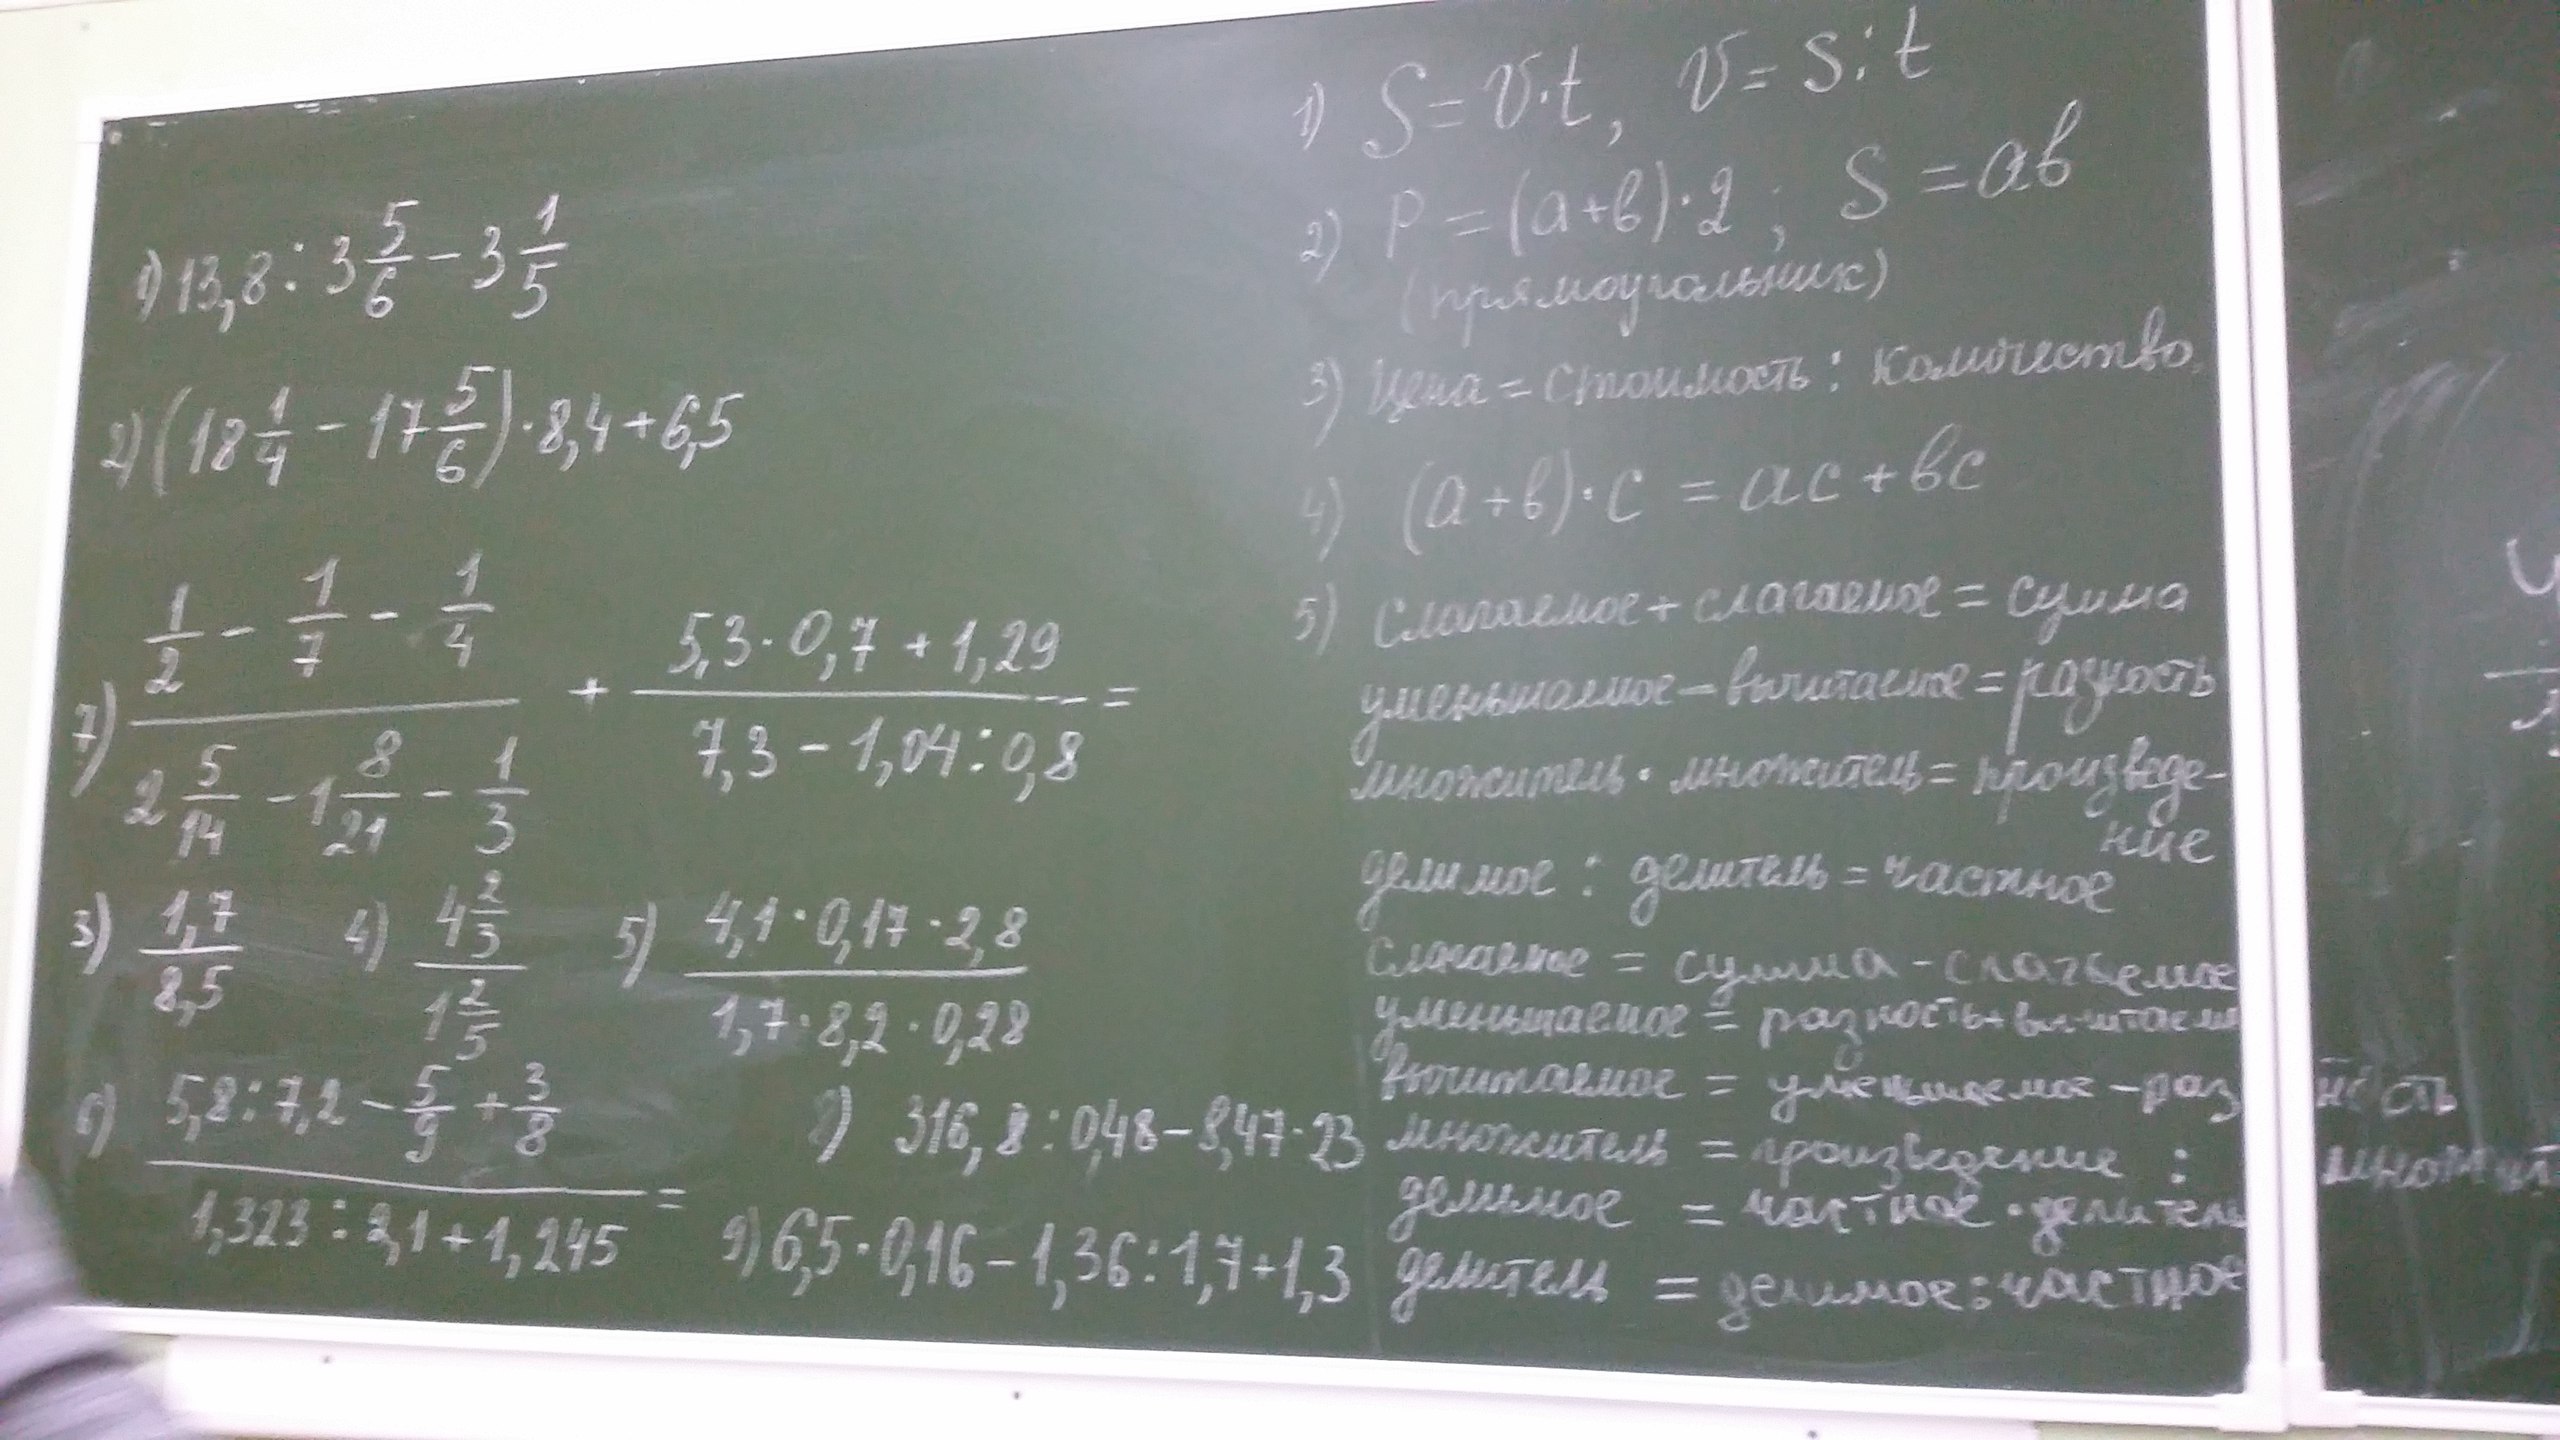 1) 13,8 : 3 5/6 - 3 1/5
2) (18 1/4 - 17 5/6) · 8,4 + 6,5
7) (1/2 - 1/7 - 1/4) / (2 5/14 - 1 8/21 - 1/3) + (5,3 · 0,7 + 1,29) / (7,3 - 1,04 : 0,8) =
3) 1,7/8,5 4) 4 2/3 / 1 2/5 5) (4,1 · 0,17 · 2,8) / (1,7 · 8,2 · 0,28)
6) (5,8 : 7,2 - 5/9 + 3/8) / (1,323 : 2,1 + 1,245) =
8) 316,8 : 0,48 - 9,47 · 23
9) 6,5 · 0,16 - 1,36 : 1,7 + 1,3
1) S = v · t, v = S : t
2) P = (a + b) · 2 ; S = ab
(прямоугольник)
3) Цена = стоимость : количество.
4) (a + b) · c = ac + bc
5) слагаемое + слагаемое = сумма
уменьшаемое - вычитаемое = разность
множитель · множитель = произведе-
ние
делимое : делитель = частное
слагаемое = сумма - слагаемое
уменьшаемое = разность + вычитаем
вычитаемое = уменьшаемое - разность
множитель = произведение : множит
делимое = частное · делитель
делитель = делимое : частное